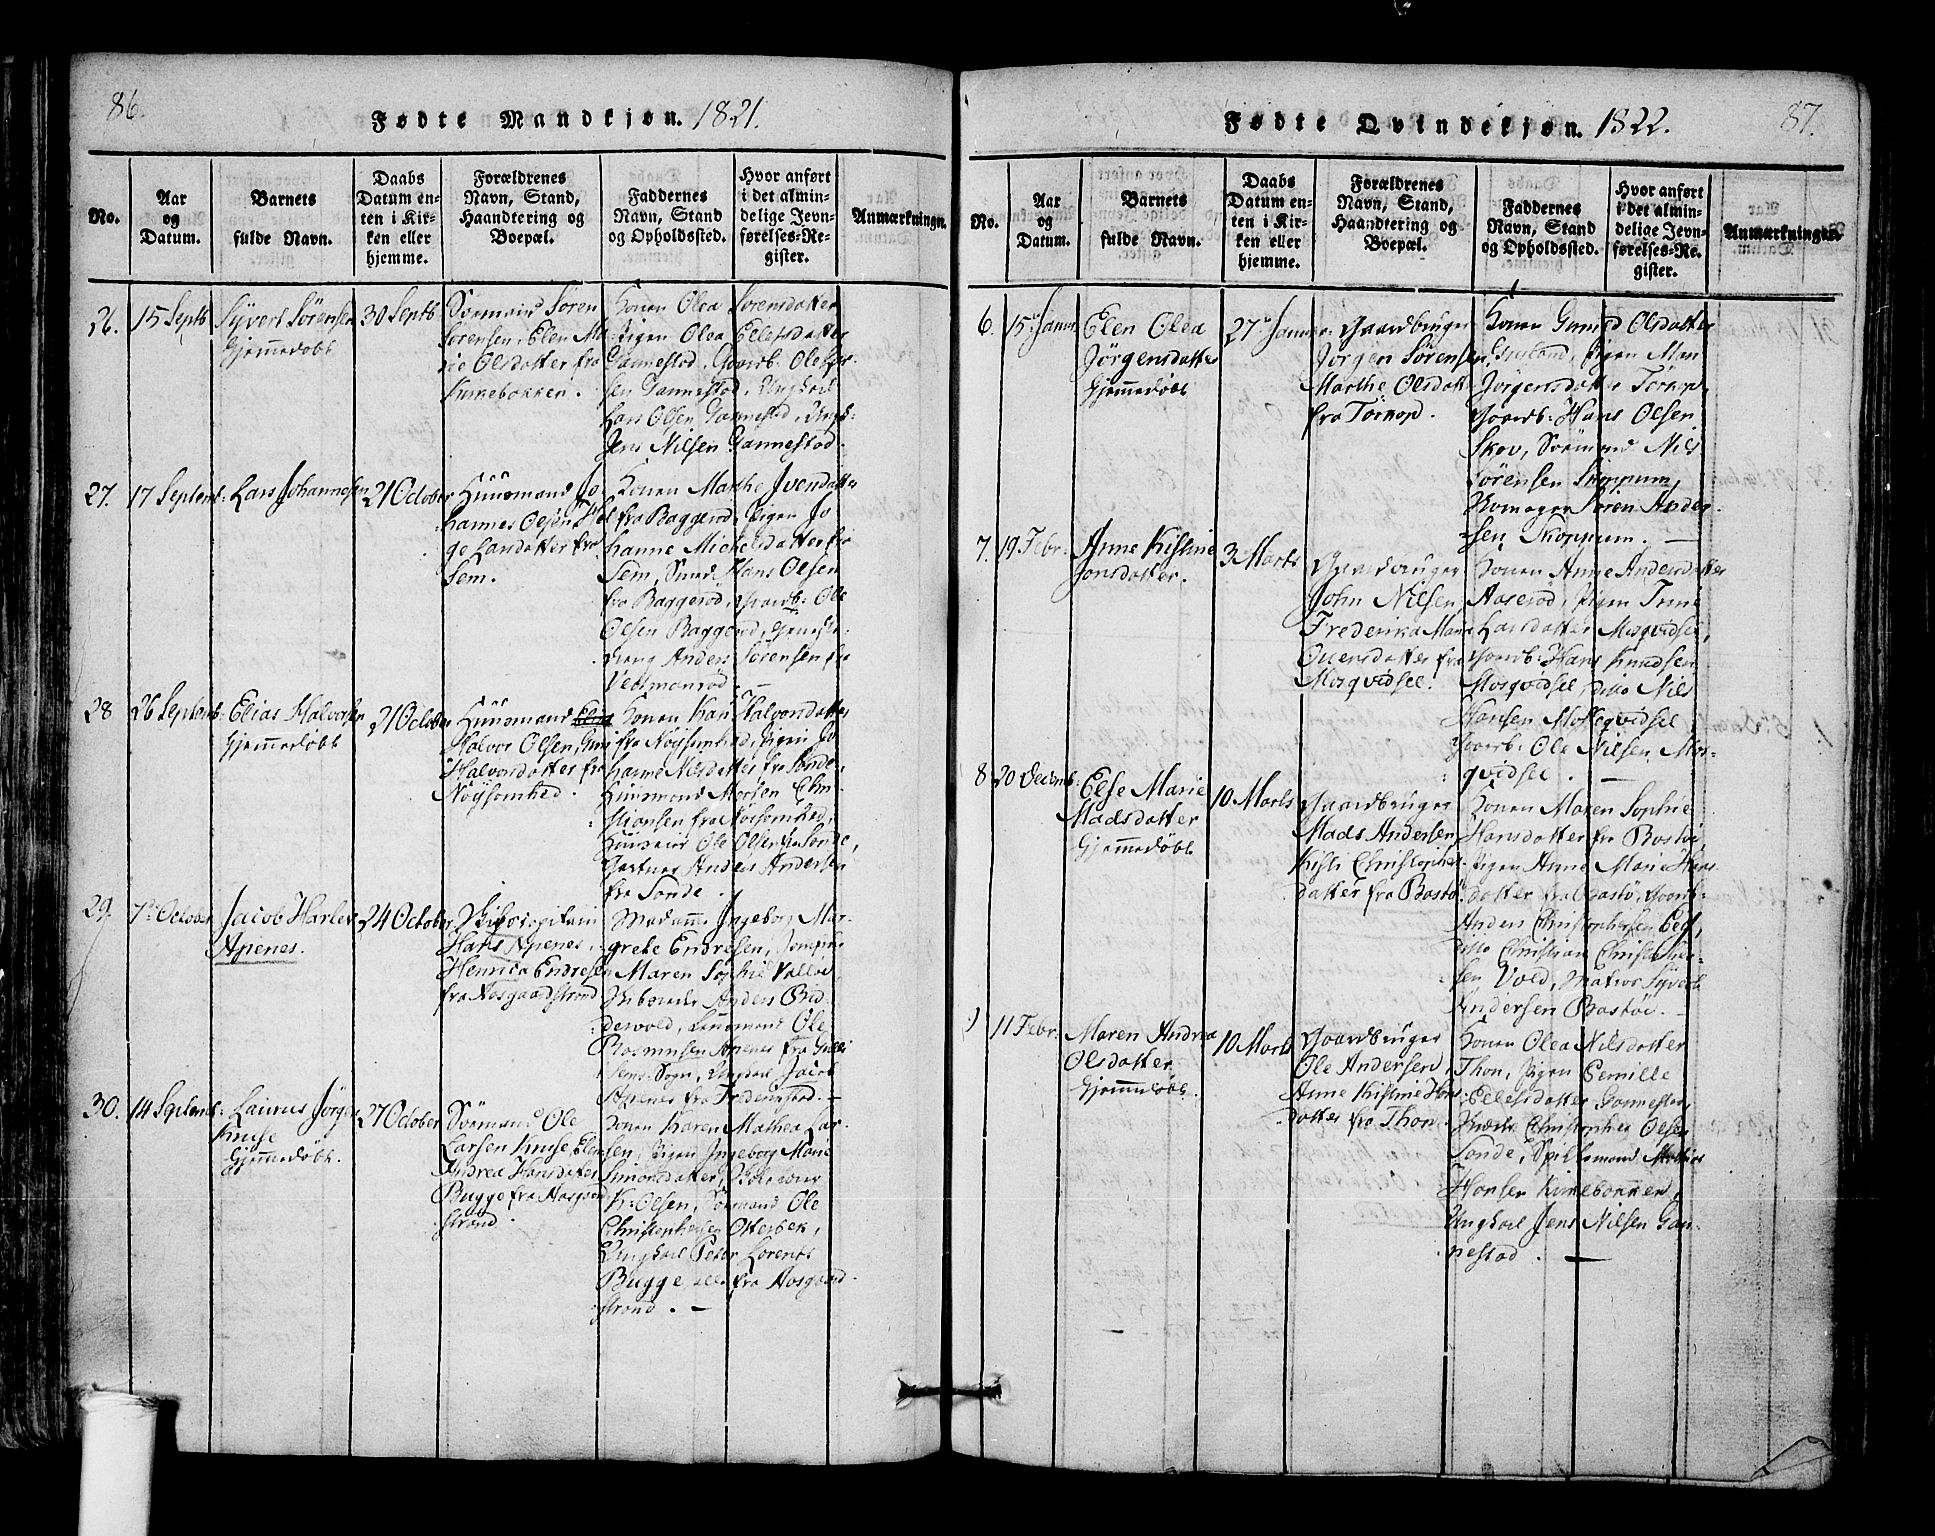 86.
Fødte Mandkjøn. 1821.
No.
Aar og Datum.
Barnets fulde Navn.
Daabs Datum enten i Kirken eller hjemme.
Forældrenes Navn, Stand, Haandtering og Boepæl.
Faddernes Navn, Stand og Opholdssted.
Hvor anført i det almindelige Jevnførelses-Register.
Anmærkningn.
26.
15 Septb
Syvert Sörensen
Gjemmedöbt
30 Septb
Sörmand Sören
Sörensen, Elen Ma-
rie Olsdatter fra
Kirkebakken.
Konen Olea Sörensdatter
Pigen Olea Ellefsdatter
Gannestad, Gaarb. Ole
sen Gannestad, Ungkarl
Lars Olsen Gannestad, Ungk:
Jens Nilsen Gannestad.
27.
17 Septemb:
Lars Johannesen
21 October
Huusmand Jo
hannes Olsen, Hel
ge Larsdatter fra
Sem.
Konen Marthe Ivensdatter
fra Baggerød, Pigen Jo
hanne Michelsdatter fra
Sem, Hans Olsen
fra Baggerød, Gaarb: Ole
Olsen Baggerød,
dreng Anders Sörensen fra
28
26 Septemb:
Elias Halvorsen
Gjemmedöbt
21 October
Huusmand
Halvor Olsen,
Halvorsdatter fra
Nöysomhed.
Konen Kari Halvorsdatter
fra Nöysomhed, Pigen Jo
hanne Nilsdatter fra Sonde,
Huusmand
fra Nöysomhed,
Ole Olsen fra Sonde,
Gartner Anders Andersen
fra Sonde.
29.
7de October
Jacob Harlev
Apenes.
24 October
Skibscapitain
Hans Apenes,
Henrica Endresen
fra Aasgaardstrand
Madame Ingeborg Mar-
grete Endresen, Jomfru
Maren Sophie
Anders Bud-
devold, Ole
Rasmusen Apenes fra
Sogn, Ungkarl Jacob
Apenes fra Fredrikstad.
30.
14 Septemb:
Laurus Jörgen
Kruse
Gjemmedöbt.
27 October
Sörmand Ole
Larsen Kruse, Elen
Andrea Hansdatter
Bugge fra Aasgaard
strand.
Konen Karen Mathea Lar-
sen, Pigen Ingeborg Marie
Simonsdatter,
K: Olsen, Sörmand Ole
Christophersen Otterbek,
Ungkarl Peter Lorents
Bugge alle fra Aasgaard
strand. —
87.
Fødte Qvindekjøn. 1822.
No.
Aar og Datum.
Barnets fulde Navn.
Daabs Datum enten i Kirken eller hjemme.
Forældrenes Navn, Stand, Haandtering og Boepæl.
Faddernes Navn, Stand og Opholdssted.
Hvor anført i det almindelige Jevnførelses-Register.
Anmærkninger.
6.
15de Janu
Elen Olea
Jörgensdatter
Gjemmedöbt
27de Janu
Gaardbruger
Jörgen Sörensen
Marthe Olsdatt
fra Törkop.
Konen Gunild Olsdatter
Pigen Mari
Jörgensdatter Törkop,
Gaarb: Hans Olsen
Skov, Sörmand Nils
Sörensen Skoppum,
Sören Ander
sen Skoppum. —
7.
19 Febr:
Anne Kistine
Jonsdatter.
3 Marts
Gaardbruger
John Nilsen,
Frederika Maria
fra
Mosqvidsel.
Konen Anne Andersdatter
Aaserød, Pigen Trine
Larsdatter Mosqvidsel,
Gaarb: Hans Knudsen
Mosqvidsel, ditto Nils
Hansen Mosqvidsel
Gaarb: Ole Nilsen Mos-
qvidsel. —
8
20 Decemb:
Else Marie
Madsdatter
Gjemmedöbt
10 Marts
Gaardbruger
Mads Andersen,
Kisti Christophers
datter fra Bastö
Konen Maren Sophie
Hansdatter fra Bastöe,
Pigen Anne Marie Hans
datter fra Bastö, Gaarb:
Anders Christophersen Eeg,
ditto Christian Christopher-
sen Vold, Matros Syvert
Andersen Bastöe. —
11 Febr:
Maren Andrea
Olsdatter
Gjemmedöbt
10 Marts
Gaardbruger
Ole Andersen,
Anne Kistine Hans
datter fra Thon.
Konen Olea Nilsdatter
Thon, Pigen Pernille
Ellefsdatter Gannestad,
Christopher Olsen
Sonde, Spillemand Mathias
Hansen Kirkebakken,
Ungkarl Jens Nilsen Gan-
nestad. —